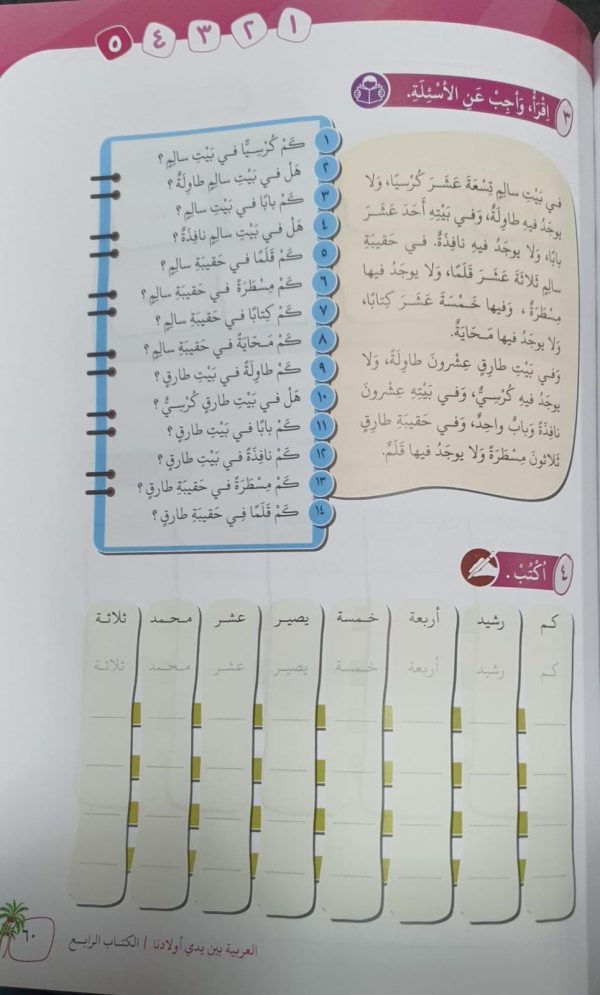 ١ ٢ ٣ ٤ ٥
٣ اِقْرَأْ، وَأَجِبْ عَنِ الأَسْئِلَةِ.
في بَيْتِ سالِمٍ تِسْعَةَ عَشَرَ كُرْسيًا، وَلا
يوجَدُ فيهِ طاوِلَةٌ، وَفي بَيْتِهِ أَحَدَ عَشَرَ
بابًا، وَلا يوجَدُ فيهِ نافِذَةٌ. في حَقيبَةِ
سالِمٍ ثَلاثَةَ عَشَرَ قَلَمًا، وَلا يوجَدُ فيها
مِسْطَرَةٌ ، وَفيها خَمْسَةَ عَشَرَ كِتابًا،
وَلا يوجَدُ فيها مَحّايَةٌ.
وَفي بَيْتِ طارِقٍ عِشْرونَ طاوِلَةً، وَلا
يوجَدُ فيهِ كُرْسِيٌّ، وَفي بَيْتِهِ عِشْرونَ
نافِذَةً وَبابٌ واحِدٌ، وَفي حَقيبَةِ طارِقٍ
ثَلاثونَ مِسْطَرَةً وَلا يوجَدُ فيها قَلَمٌ.
١ كَمْ كُرْسِيًّا في بَيْتِ سالِمٍ ؟
٢ هَلْ في بَيْتِ سالِمٍ طاوِلَةٌ ؟
٣ كَمْ بابًا في بَيْتِ سالِمٍ ؟
٤ هَلْ في بَيْتِ سالِمٍ نافِذَةٌ ؟
٥ كَمْ قَلَمًا في حَقيبَةِ سالِمٍ ؟
٦ كَمْ مِسْطَرَةً في حَقيبَةِ سالِمٍ ؟
٧ كَمْ كِتابًا في حَقيبَةِ سالِمٍ ؟
٨ كَمْ مَحّايَةً في حَقيبَةِ سالِمٍ ؟
٩ كَمْ طاوِلَةً في بَيْتِ طارِقٍ ؟
١٠ هَلْ في بَيْتِ طارِقٍ كُرْسِيٌّ ؟
١١ كَمْ بابًا في بَيْتِ طارِقٍ ؟
١٢ كَمْ نافِذَةً في بَيْتِ طارِقٍ ؟
١٣ كَمْ مِسْطَرَةً في حَقيبَةِ طارِقٍ ؟
١٤ كَمْ قَلَمًا فِي حَقيبَةِ طارِقٍ ؟
٤ اُكْتُبْ .
كم رشيد أربعة خمسة يصير عشر محمد ثلاثة
كم رشيد أربعة خمسة يصير عشر محمد ثلاثة
٦٠ العربية بين يدي أولادنا | الكتاب الرابع